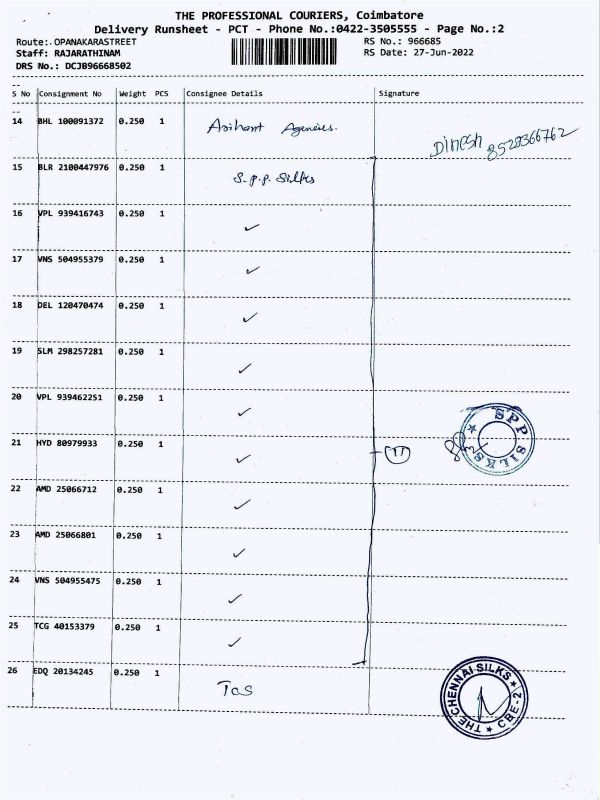 THE PROFESSIONAL COURIERS, Coimbatore
Delivery Runsheet - PCT - Phone No.:0422-3505555 - Page No.:2
Route: OPANAKARASTREET RS No.: 966685
Staff: RAJARATHINAM RS Date: 27-Jun-2022
DRS No.: DCJB96668502
--
S No Consignment No Weight PCS Consignee Details Signature
--
14 BHL 100091372 0.250 1 Arihant Agencies. Dinesh 8528366762
15 BLR 2100447976 0.250 1 S.P.P. Silks
16 VPL 939416743 0.250 1 ✓
17 VNS 504955379 0.250 1 ✓
18 DEL 120470474 0.250 1 ✓
19 SLM 298257281 0.250 1 ✓
20 VPL 939462251 0.250 1 ✓
SPP SILKS
21 HYD 80979933 0.250 1 ✓ 11
22 AMD 25066712 0.250 1 ✓
23 AMD 25066801 0.250 1 ✓
24 VNS 504955475 0.250 1 ✓
25 TCG 40153379 0.250 1 ✓
26 EDQ 20134245 0.250 1 TCS
THE CHENNAI SILKS CBE-2